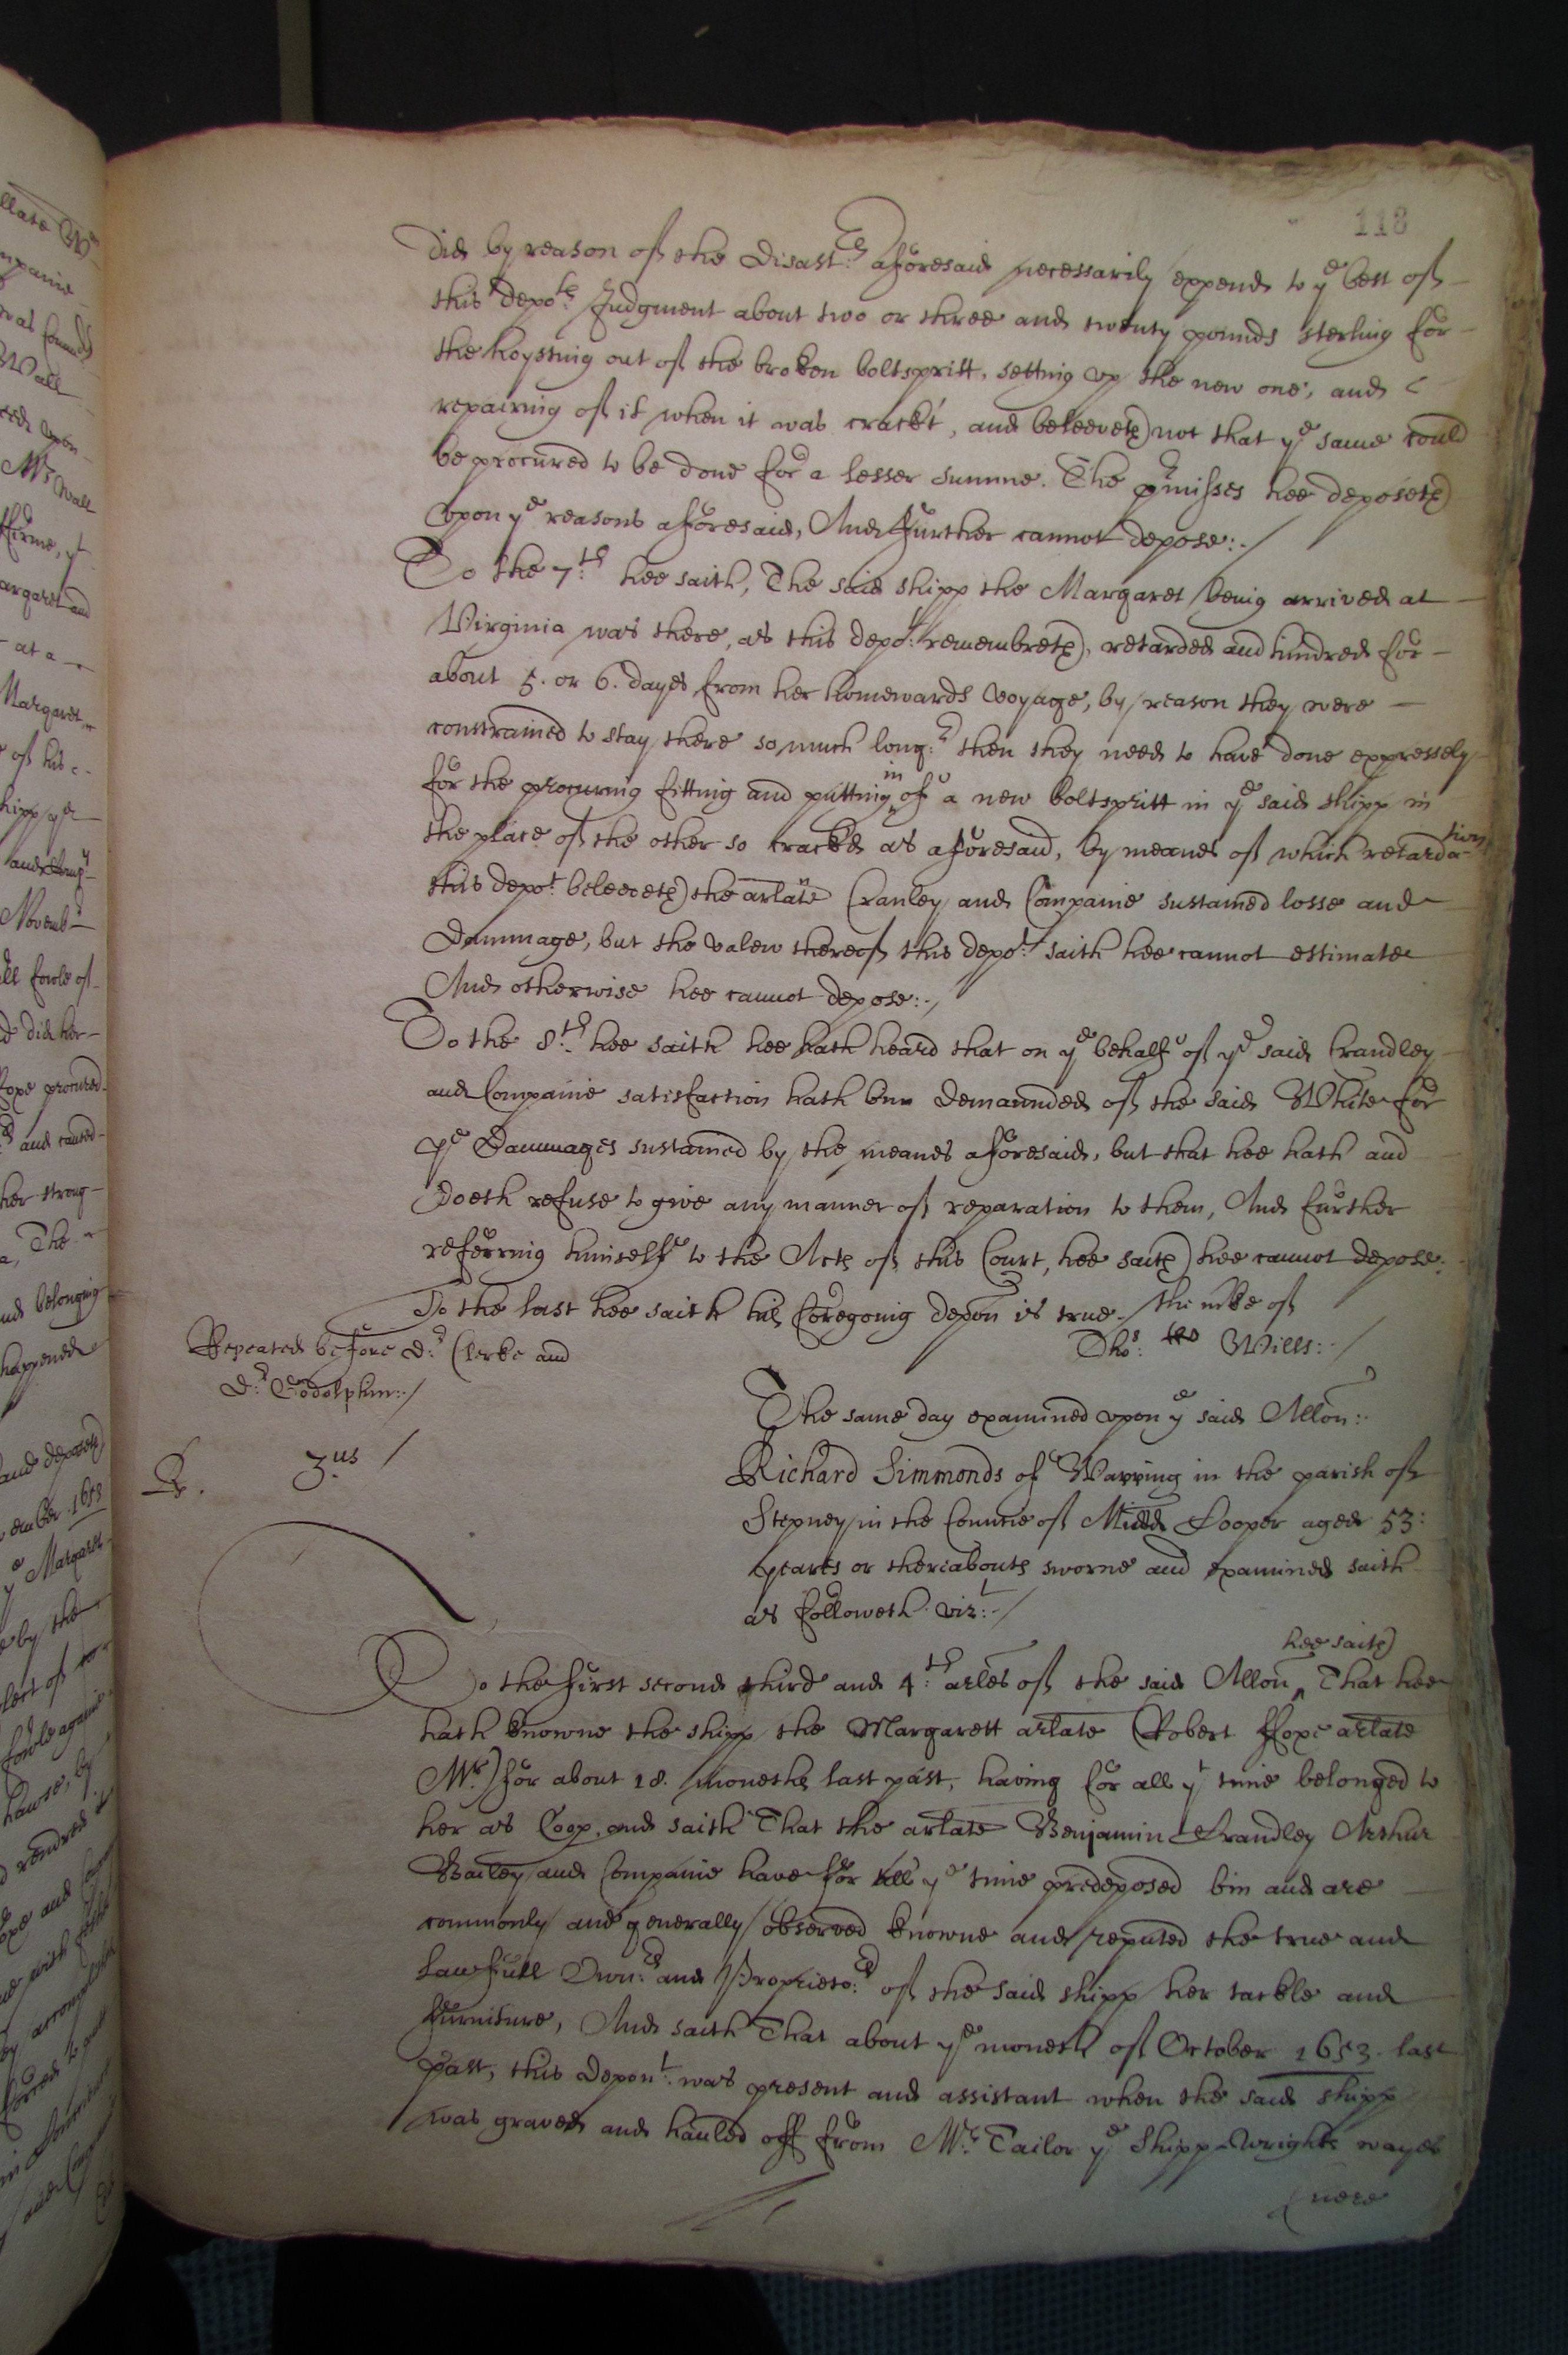 118
did by reason of the disast:rs aforesaid necessarily expend to ye best of
this depots Judgment about two or three and twenty pounds sterling for
the hoysting out of the broken boltspritt, setting vp the new one, and
repairing of it when it was crackt, and beleeveth not that ye same could
be procured to be done for a lesser summe. The pmisses hee deposeth
vpon ye reasons aforesaid, And further cannot depose:./
To the 7:th hee saith, The said shipp the Margaret being arrived at
Virginia was there, as this depot: remembreth, retarded and hindred for
about 5. or 6. dayes from her homewards voyage, by reason they were
constrained to stay there so much long:r then they need to have done expressely
for the procuring fitting and putting in of a new boltspritt in ye said shipp in
the place of the other so crackd as aforesaid, by meanes of which retardation
this depot: beleeveth the arlate Cranley and Companie sustained losse and
Dammage, but the valew thereof this depot: saith hee cannot estimate
And otherwise hee cannot depose:./
To the 8:th hee saith hee hath heard that on ye behalf of ye said Crandley
and Companie satisfaction hath bin demaunded of the said White for
ye Dammages sustained by the meanes aforesaid, but that hee hath and
doeth refuse to give any manner of reparation to them, And further
referring himself to the Acts of this Court, hee saith hee cannot depose.
To the last hee saith his foregoing depon is true./ the mke of
Tho:s Wills:./
Repeated before d:r Clerke and
d:r Godolphin:./
The same day examined vpon ye said Allon:
3.us /
Richard Simmonds of Wapping in the parish of
Stepney in the Countie of Midd Cooper aged 53:
yeares or thereabouts sworne and examined saith
as followeth vizt:./
hee saith
To the first second third and 4:th arles of the said Allon, That hee
hath knowne the shipp the Margarett arlate (Robert Hope arlate
Mr) for about 18. moneths last past, having for all yt time belonged to
her as Coop, and saith That the arlate Benjamin Crandley Arthur
Bailey and Companie have for all ye time predeposed bin and are
commonly and generally observed knowne and reputed the true and
lawfull Own:rs and Proprieto:rs of the said shipp her tackle and
furniture, And saith That about ye moneth of October 1653. last
past, this depont: was present and assistant when the said shipp
was graved and hauled off from Mr: Tailor ye Shipp-Wrights wayes
nere